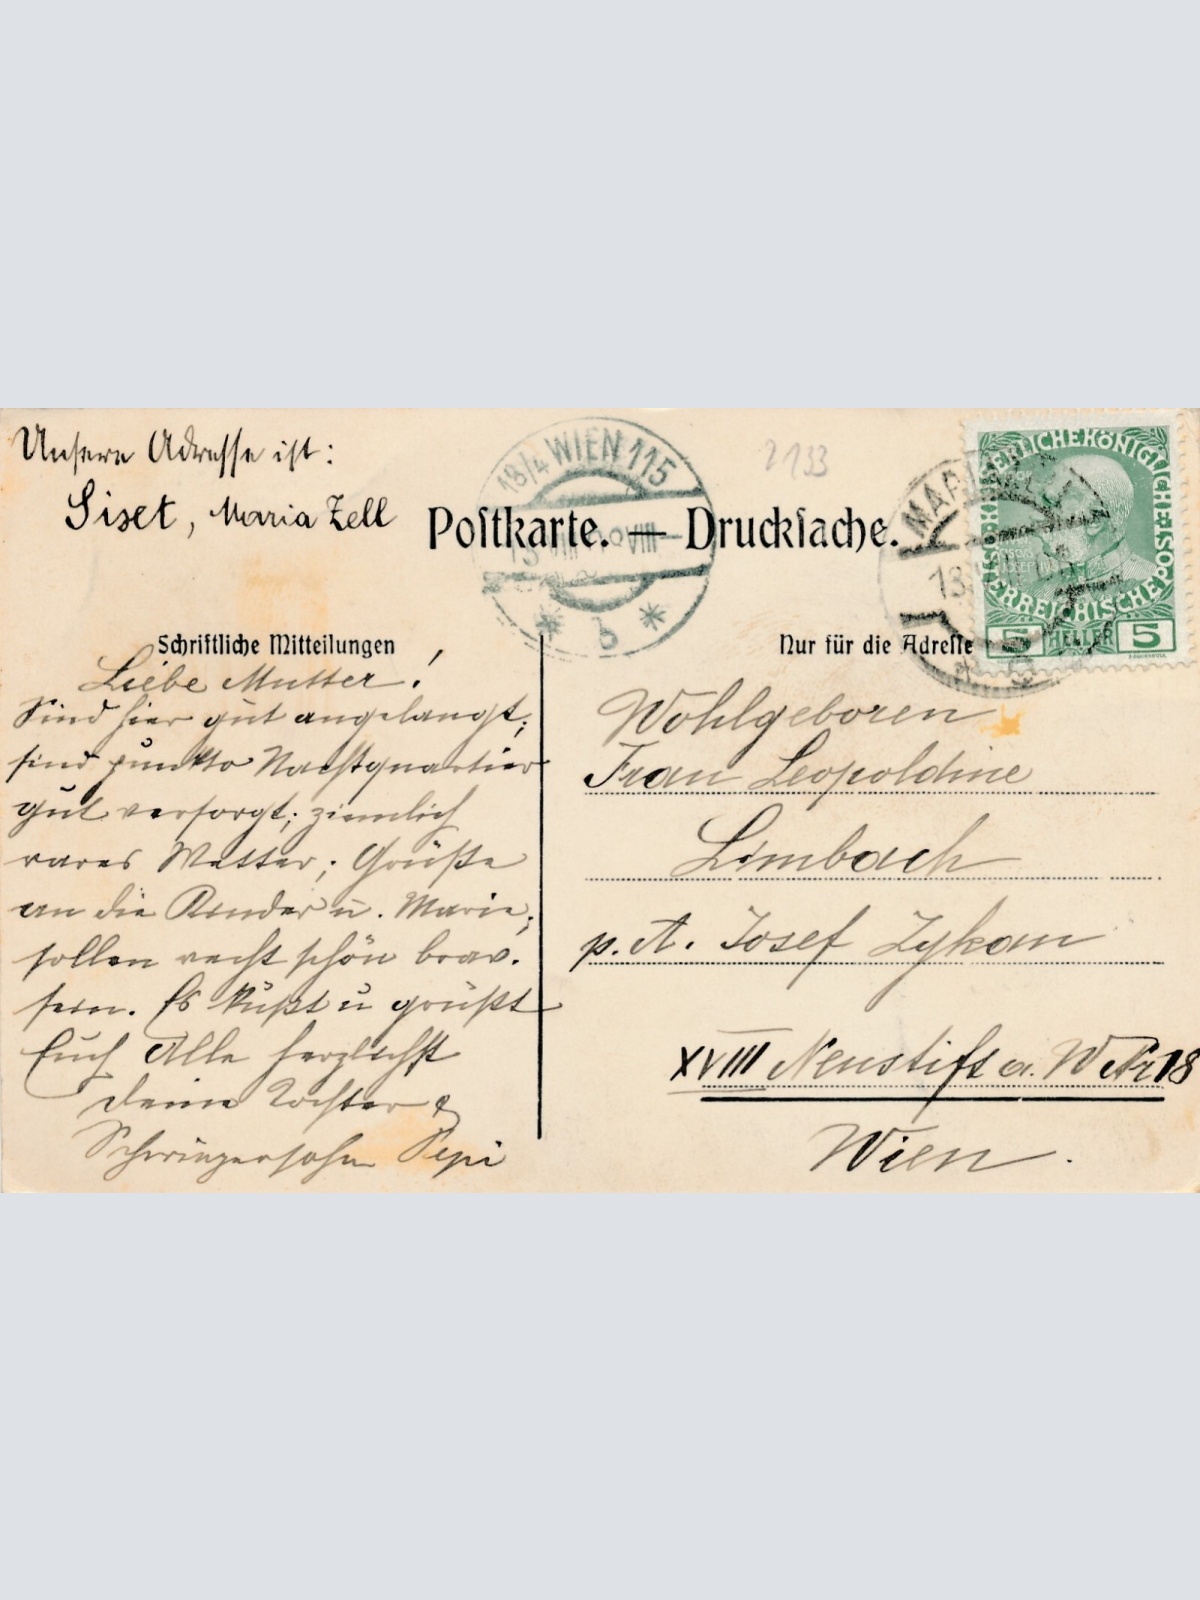 Unsere Adresse ist:
Siset, Maria Zell
18/4 WIEN 115
2133
Postkarte. — Drucksache.
VIII
b
MARIAZELL
13
KAISERLICHE KÖNIGLICHE
ÖSTERREICHISCHE
5 HELLER 5
Schriftliche Mitteilungen
Nur für die Adresse
Liebe Mutter!
Sind hier gut angelangt;
sind punkto Nachtquartier
gut versorgt; ziemlich
rares Wetter; Grüße
an die Kinder u. Marie;
sollen recht schön brav.
sein. Es küßt u grüßt
Euch Alle herzlichst
deine Tochter &
Schwiegersohn Pepi
Wohlgeboren
Frau Leopoldine
Limbach
p. A. Josef Zykan
XVIII Neustift a. W Nr 18
Wien.